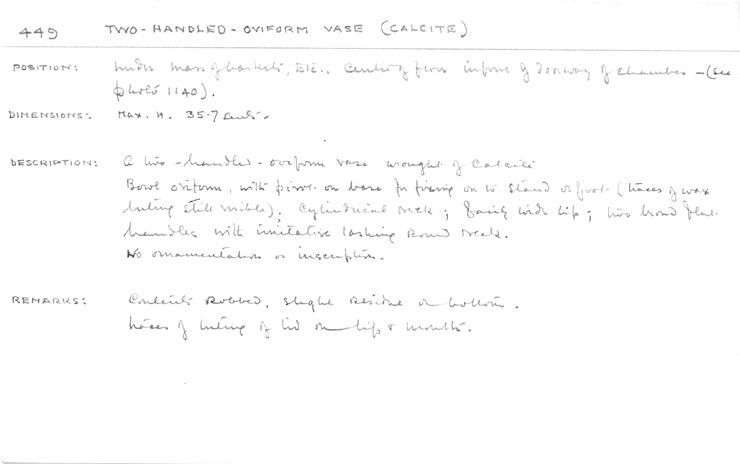 449 TWO-HANDLED-OVIFORM VASE (CALCITE)
POSITION: Under mass of baskets, Etc., centre of floor infront of doorway of chamber - (see
photo 1140).
DIMENSIONS: Max. H. 35-7 cents.
DESCRIPTION: A two-handled-oviform vase wrought of calcite
Bowl oviform, with pivot on base for fixing on to stand or foot (traces of wax
luting still visible); cylindrical neck; fairly wide lip; two broad flat
handles with imitative lashing round neck.
No ornamentation or inscription.
REMARKS: Contents Robbed, slight Residue on bottom.
traces of luting of lid on lip & mouth.